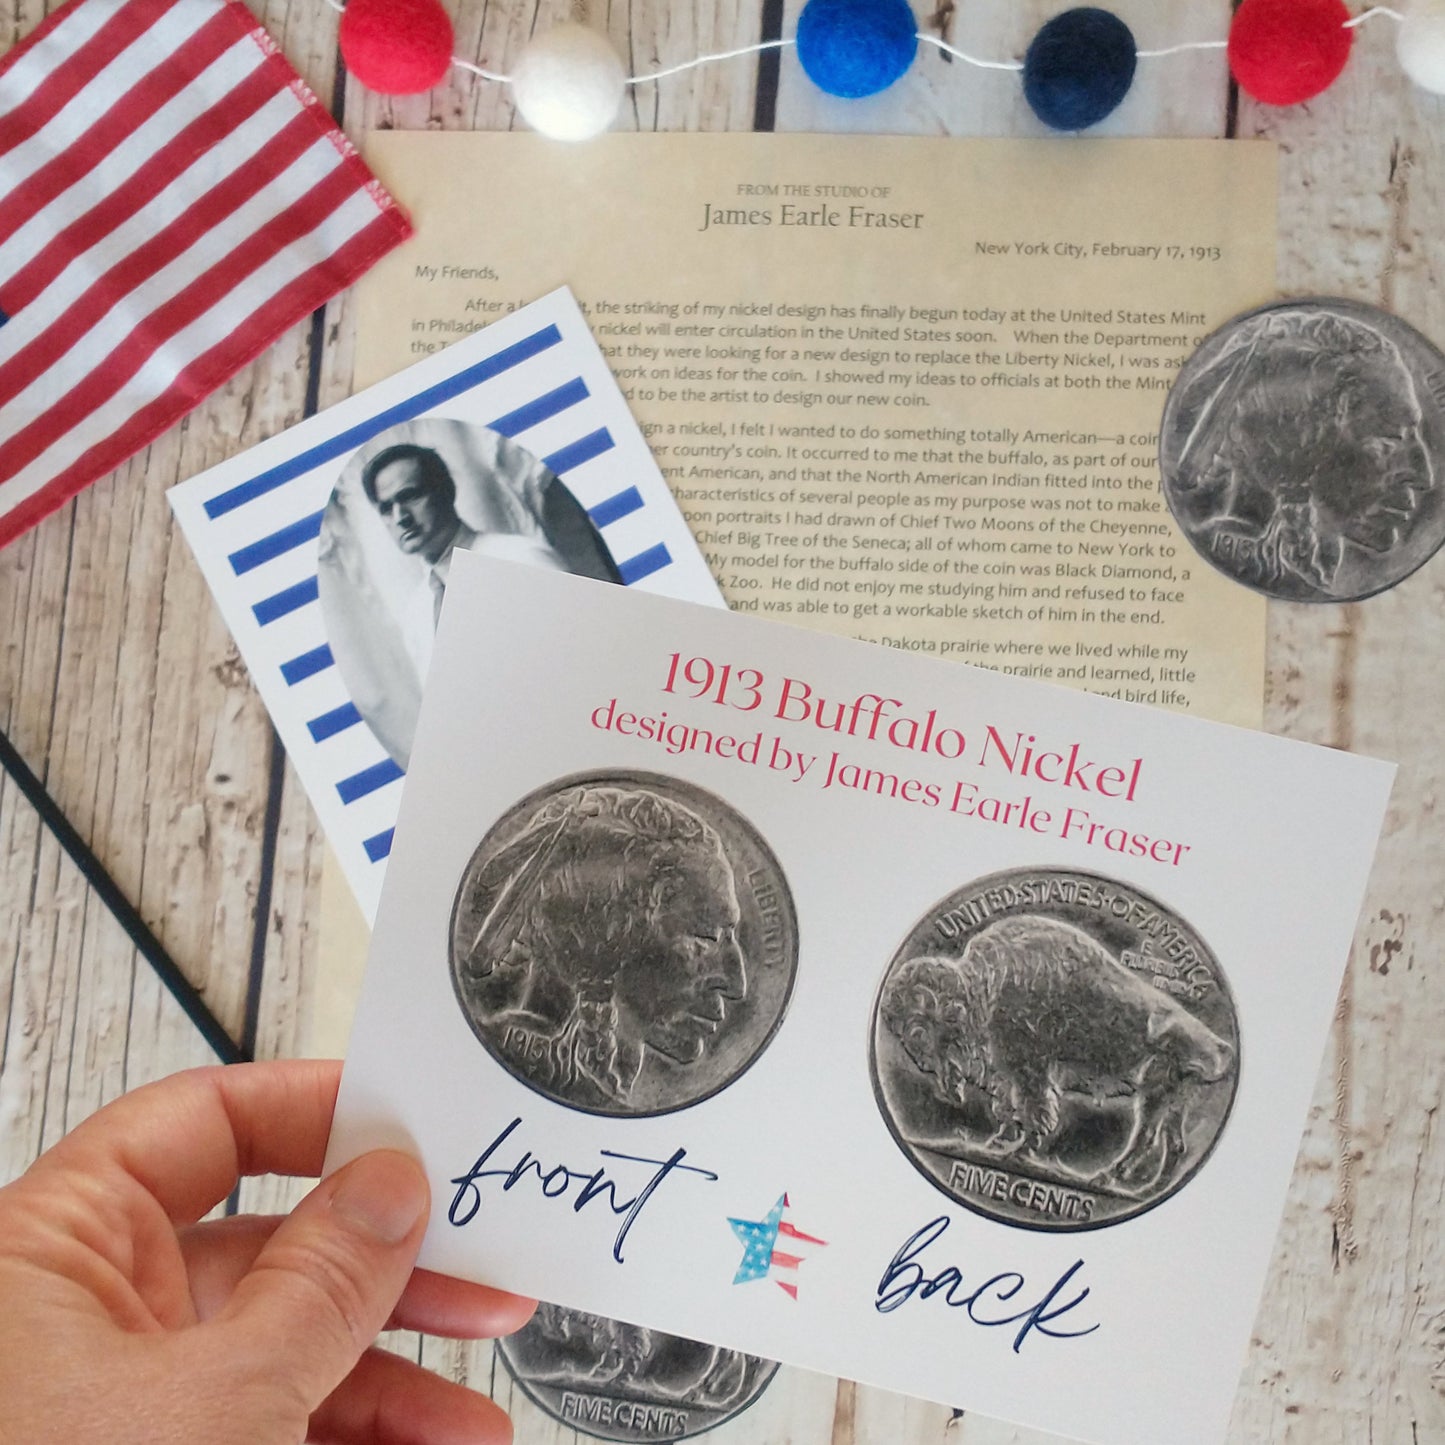 FROM THE STUDIO OF
James Earle Fraser
New York City, February 17, 1913
My Friends,
After a it, the striking of my nickel design has finally begun today at the United States Mint
in nickel will enter circulation in the United States soon. When the Department
the hat they were looking for a new design to replace the Liberty Nickel, I was
work on ideas for the coin. I showed my ideas to officials at both the Mint
d to be the artist to design our new coin.
ign a nickel, I felt I wanted to do something totally American—a coin
er country's coin. It occurred to me that the buffalo, as part of our
ent American, and that the North American Indian fitted into the
characteristics of several people as my purpose was not to make
pon portraits I had drawn of Chief Two Moons of the Cheyenne,
Chief Big Tree of the Seneca; all of whom came to New York to
My model for the buffalo side of the coin was Black Diamond, a
k Zoo. He did not enjoy me studying him and refused to face
and was able to get a workable sketch of him in the end.
Dakota prairie where we lived while my
the prairie and learned, little
and bird life,
1915
1913 Buffalo Nickel
designed by James Earle Fraser
LIBERTY
1915
UNITED·STATES·OF·AMERICA
E
PLURIBUS
UNUM
FIVE CENTS
front
back
FIVE CENTS